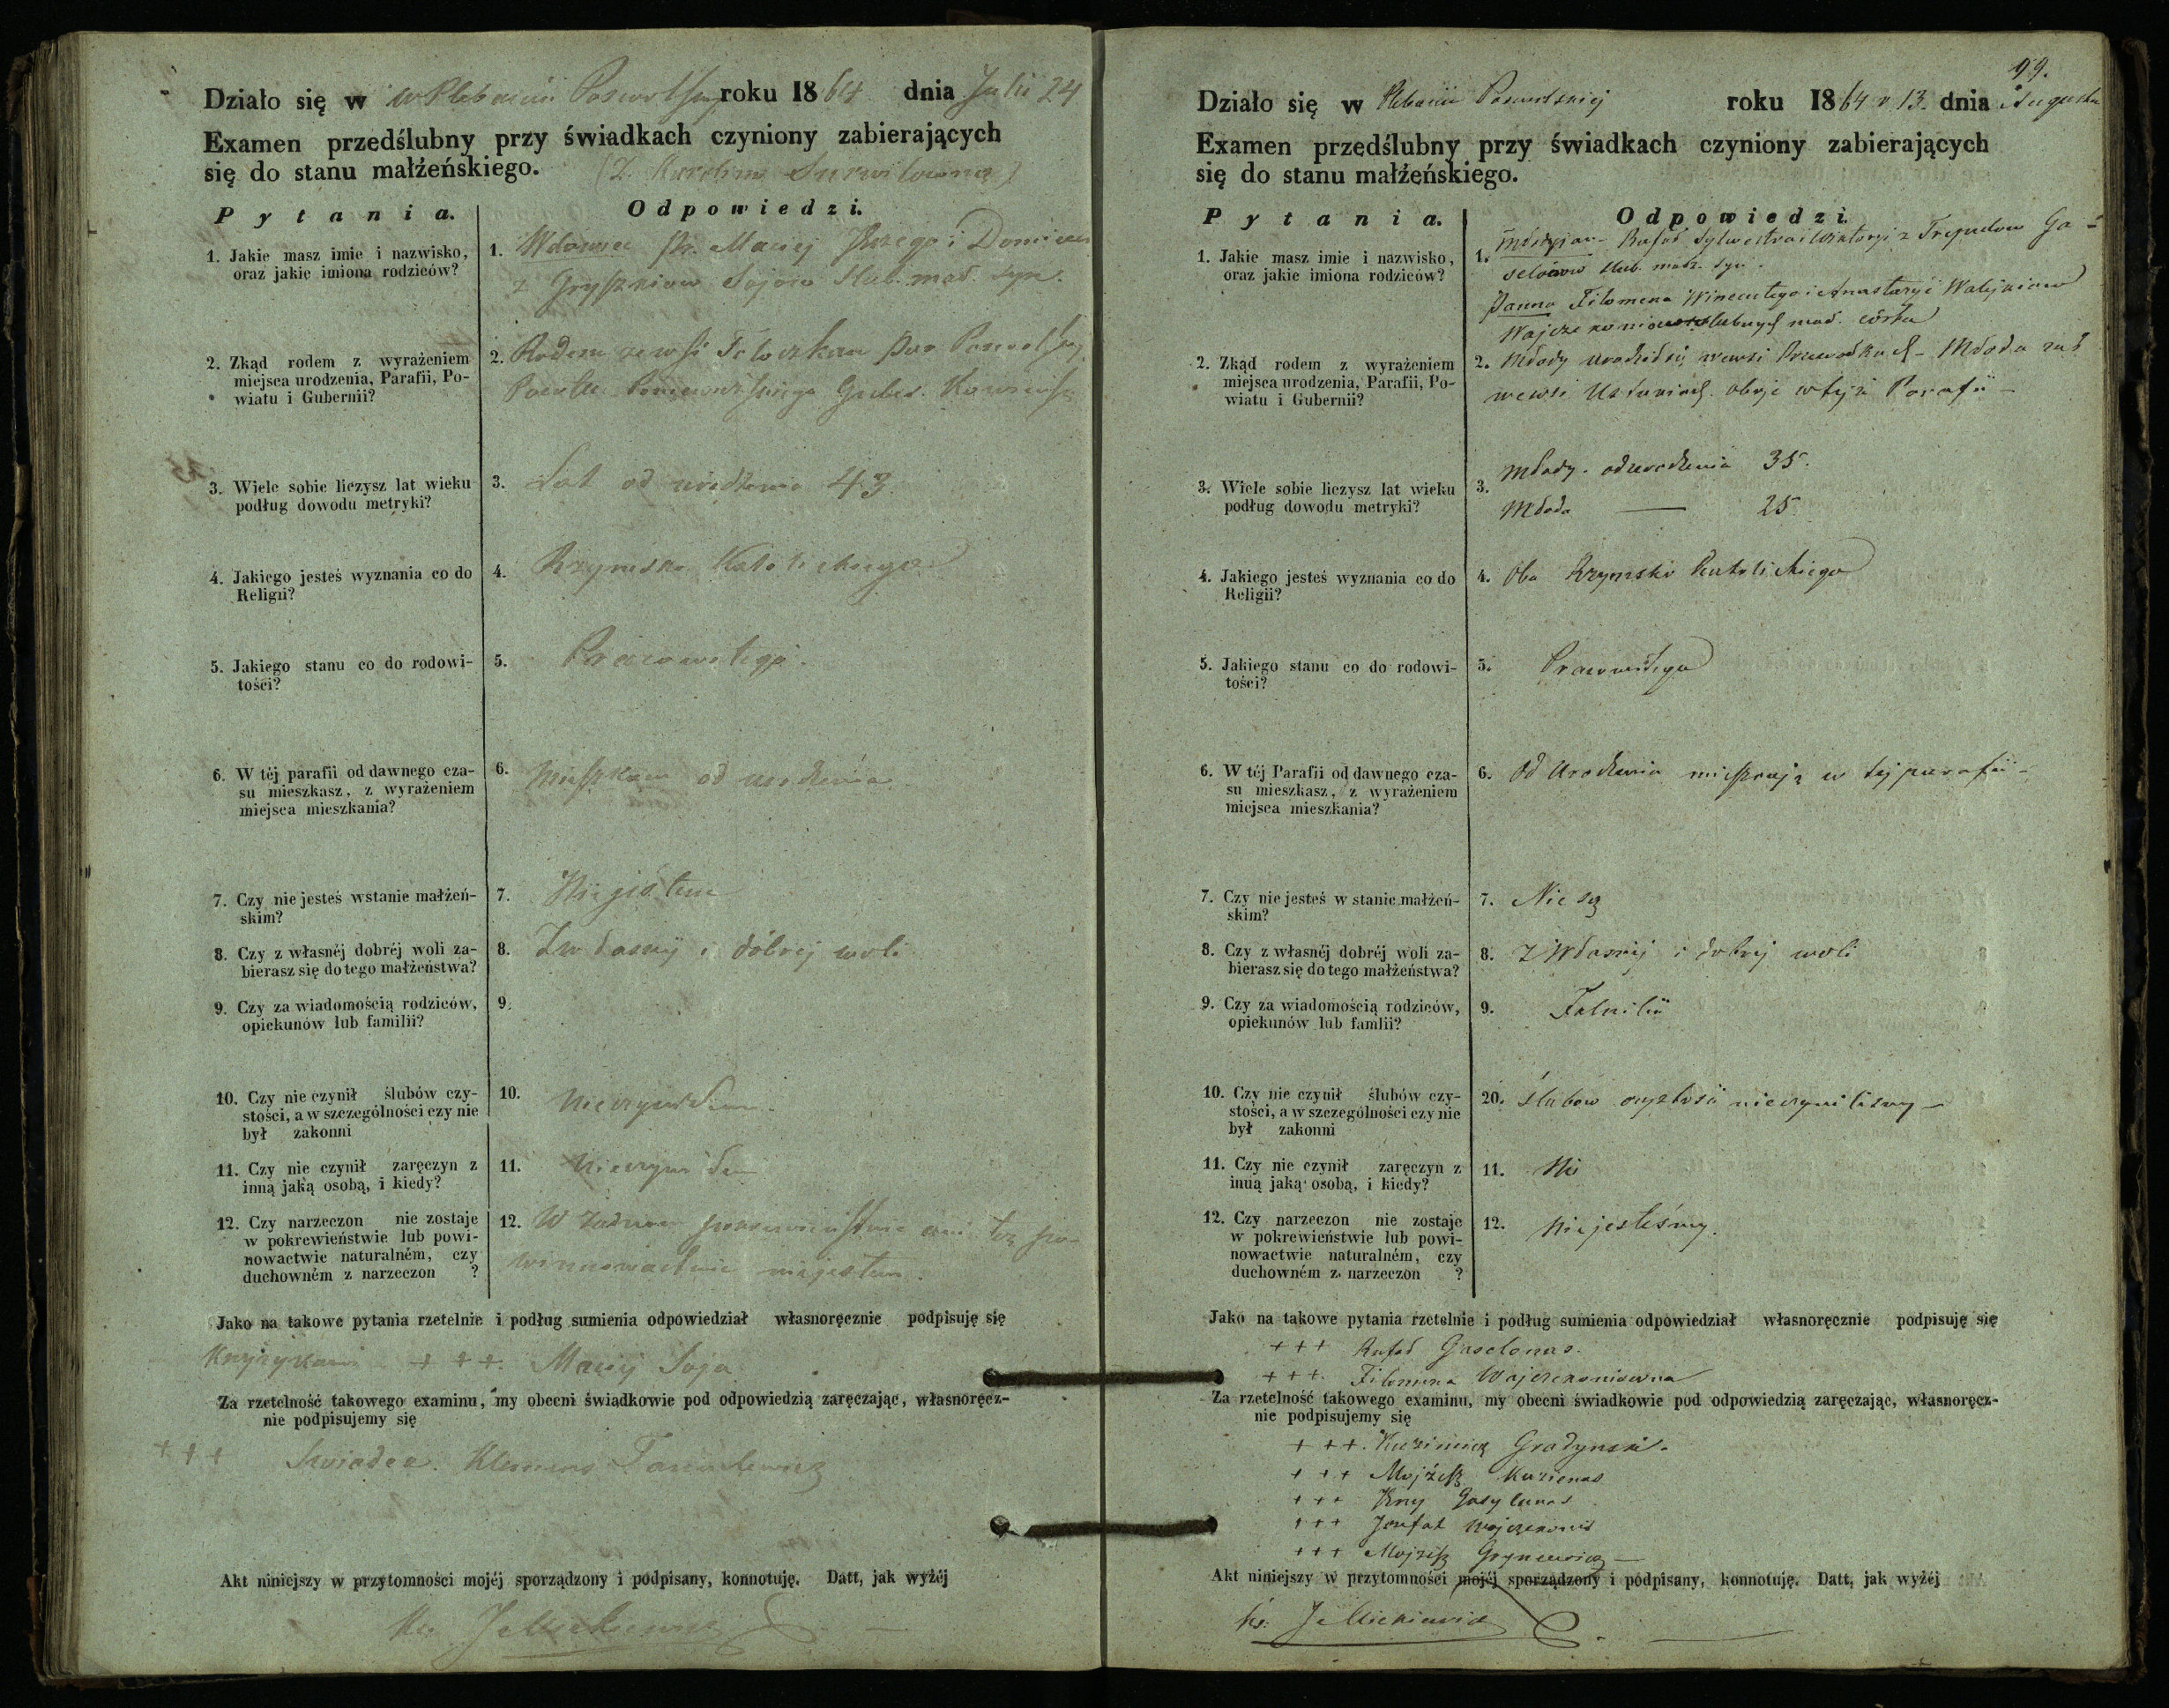 Działo się w w Plebanii Poswolskiej roku 1864 dnia Julii 24
Examen przedślubny przy świadkach czyniony zabierających
się do stanu małżeńskiego. (Z Karoliną
Pytania. Odpowiedzi.
1. Jakie masz imie i nazwisko,
oraz jakie imiona rodziców?
1. Wdowiec Maciej Jerzego i
z Soja slub. mał. syn.
2. Zkąd rodem z wyrażeniem
miejsca urodzenia, Parafii, Po-
wiatu i Gubernii?
2. Rodem ze wsi par. Poswolskiej
Powiatu Poniewieżskiego Guber. Kowieńsk
3. Wiele sobie liczysz lat wieku
podług dowodu metryki?
3. Lat od urodzenia 43
4. Jakiego jesteś wyznania co do
Religii?
4. Rzymsko Katolickiego
5. Jakiego stanu co do rodowi-
tości?
5.
6. W téj parafii od dawnego cza-
su mieszkasz, z wyrażeniem
miejsca mieszkania?
6. Mieszkam od urodzenia
7. Czy nie jesteś wstanie małżeń-
skim?
7. Nie jestem
8. Czy z własnéj dobréj woli za-
bierasz się do tego małżeństwa?
8. Z własnej i dobrej woli
9. Czy za wiadomością rodziców,
opiekunów lub familii?
9.
10. Czy nie czynił ślubów czy-
stości, a w szczególności czy nie
był zakonni
10. Nieczyniłem
11. Czy nie czynił zaręczyn z
inną jaką osobą, i kiedy?
11. Nieczyniłem
12. Czy narzeczon nie zostaje
w pokrewieństwie lub powi-
nowactwie naturalném, czy
duchowném z narzeczon ?
12. W żadnem pokrewieństwie ani też po-
winnowactwie niejestem.
Jako na takowe pytania rzetelnie i podług sumienia odpowiedział własnoręcznie podpisuję się
Krzyżykami +++. Maciej Soja
Za rzetelność takowego examinu, my obecni świadkowie pod odpowiedzią zaręczając, własnoręcz-
nie podpisujemy się
+++ Klemens
Akt niniejszy w przytomności mojéj sporządzony i podpisany, konnotuję. Datt, jak wyżéj
Ks. J Mickiewicz
99.
Działo się w Plebanii Poswolskiej roku 1864 r 13. dnia Augusta
Examen przedślubny przy świadkach czyniony zabierających
się do stanu małżeńskiego.
Pytania. Odpowiedzi.
1. Jakie masz imie i nazwisko,
oraz jakie imiona rodziców?
1. Młodzian Rafał Sylwestra i Wiktoryi z Ga-
selonow slub. małż. syn.
Panna Filomena Wincentego i Anastazyi
slubnych mał. córka
2. Zkąd rodem z wyrażeniem
miejsca urodzenia, Parafii, Po-
wiatu i Gubernii?
2. Młody urodził się wewsi Młoda zaś
wewsi oboje w tejże Parafii
3. Wiele sobie liczysz lat wieku
podług dowodu metryki?
3. Młody od urodzenia 35.
Młoda — 25
4. Jakiego jesteś wyznania co do
Religii?
4. Oba Rzymsko Katolickiego
5. Jakiego stanu co do rodowi-
tości?
5.
6. W téj Parafii od dawnego cza-
su mieszkasz, z wyrażeniem
miejsca mieszkania?
6. Od Urodzenia mieszkają w tej parafii
7. Czy nie jesteś w stanie małżeń-
skim?
7. Nie są
8. Czy z własnéj dobréj woli za-
bierasz się do tego małżeństwa?
8. Z Własnej i dobrej woli
9. Czy za wiadomością rodziców,
opiekunów lub famlii?
9. Familii
10. Czy nie czynił ślubów czy-
stości, a w szczególności czy nie
był zakonni
20. Slubow czystosci nieczynilismy
11. Czy nie czynił zaręczyn z
inuą jaką osobą, i kiedy?
11. Nie
12. Czy narzeczon nie zostaje
w pokrewieństwie lub powi-
nowactwie naturalném, czy
duchowném z narzeczon ?
12. Nie jesteśmy.
Jako na takowe pytania rzetelnie i podług sumienia odpowiedział własnoręcznie podpisuję się
+++ Rafał Gaselonas.
+++. Filomena Wajczekoniowna
Za rzetelność takowego examinu, my obecni świadkowie pod odpowiedzią zaręczając, własnoręcz-
nie podpisujemy się
+++. Kazimierz Gradynski.
+++ Mojżesz Kurienas
+++ Jerzy Gasylunas
+++ Jozefat
+++ Mojżesz Gryncewicz
Akt niniejszy w przytomności mojéj sporządzony i podpisany, konnotuję. Datt, jak wyżéj
ks. J Mickiewicz